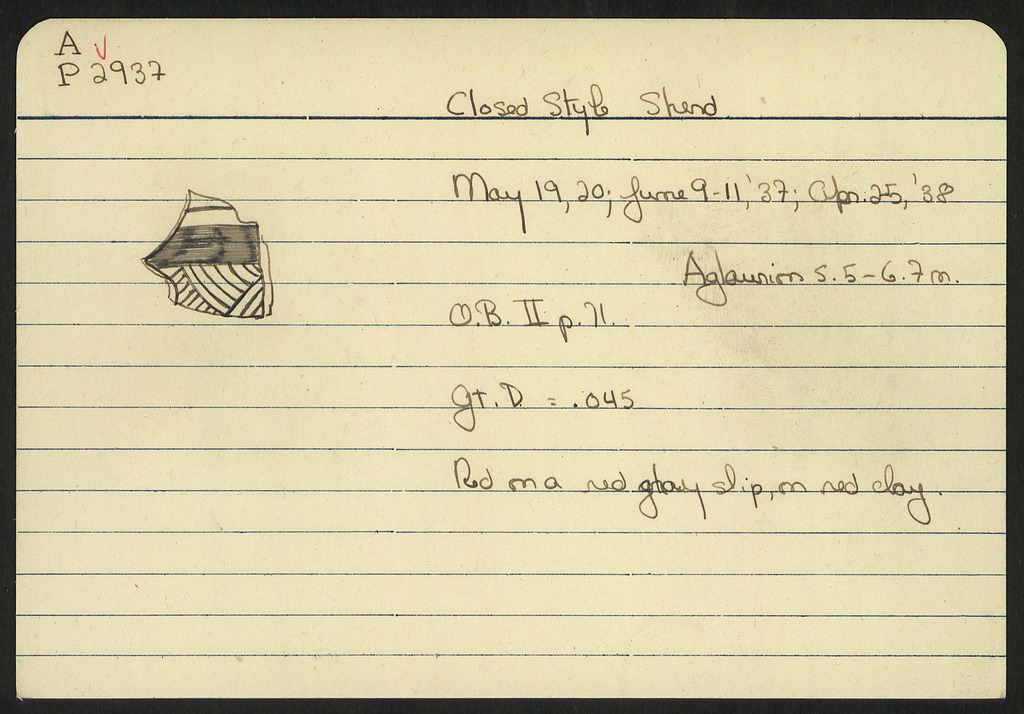 A ✓
P 2937
Closed Style Sherd
May 19, 20; June 9-11, '37; Apr. 25, '38
Aglaurion 5.5 - 6.7 m.
O.B. II p. 71.
Gt. D. = .045
Red on a red gray slip, on red clay.